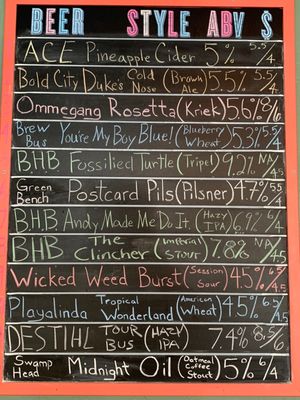 BEER STYLE ABV $
ACE Pineapple Cider 5% 5.5/4
Bold City Duke's Cold Nose (Brown Ale) 5.5% 5/4
Ommegang Rosetta (Kriek) 5.6% 8/6
Brew Bus You're My Boy Blue! (Blueberry Wheat) 5.3% 5.5/4
BHB Fossilied Turtle (Tripel) 9.2% NA/4.5
Green Bench Postcard Pils (Pilsner) 4.7% 5.5/4
B.H.B. Andy Made Me Do It. (Hazy IPA) 6.9% 6/4
BHB The Clincher (Imperial Stout) 7.8% NA/4.5
Wicked Weed Burst (Session Sour) 4.5% 6.5/4.5
Playalinda Tropical Wonderland (American Wheat) 4.5% 6.5/4.5
DESTIHL TOUR BUS (HAZY IPA) 7.4% 8.5/6
Swamp Head Midnight Oil (Oatmeal Coffee Stout) 5% 6/4